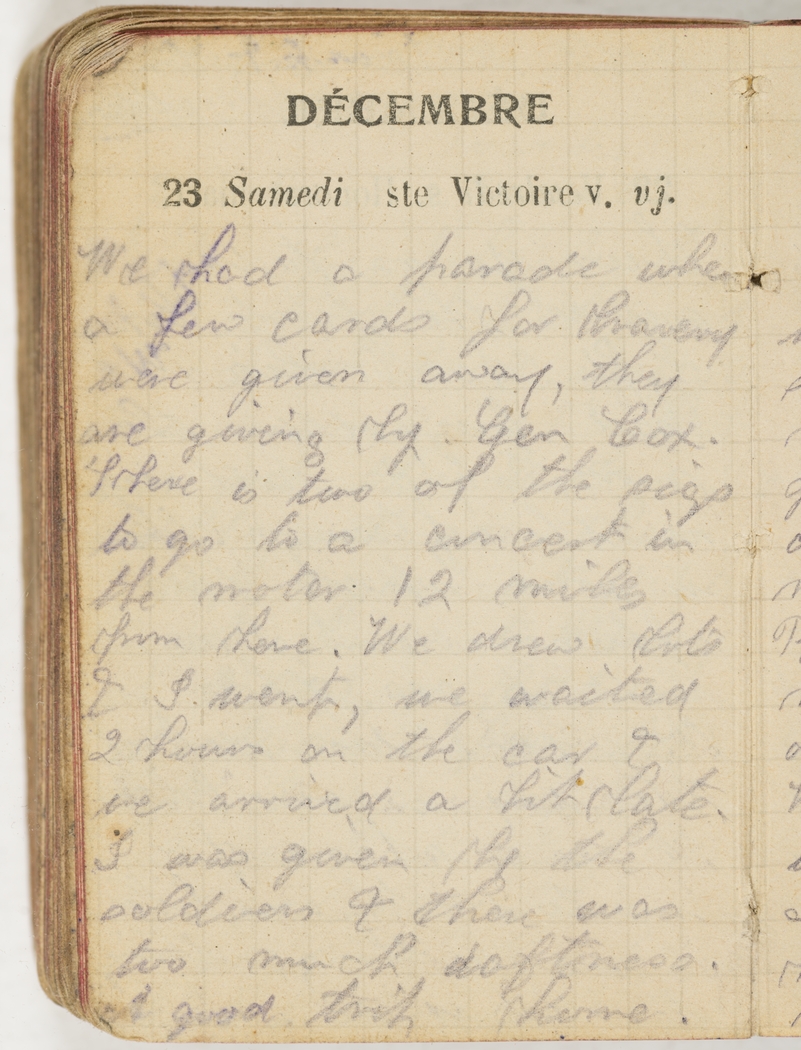 DÉCEMBRE
23 Samedi ste Victoire v. vj.
We had a parade when
a few cards for bravery
were given away, they
are giving by Gen Cox.
There is two of the sigs
to go to a concert in
the motor 12 miles
from here. We drew lots
& I went, we waited
2 hours on the car &
we arrived a bit late.
I was given by the
soldiers & there was
too much daftness.
A good trip home.